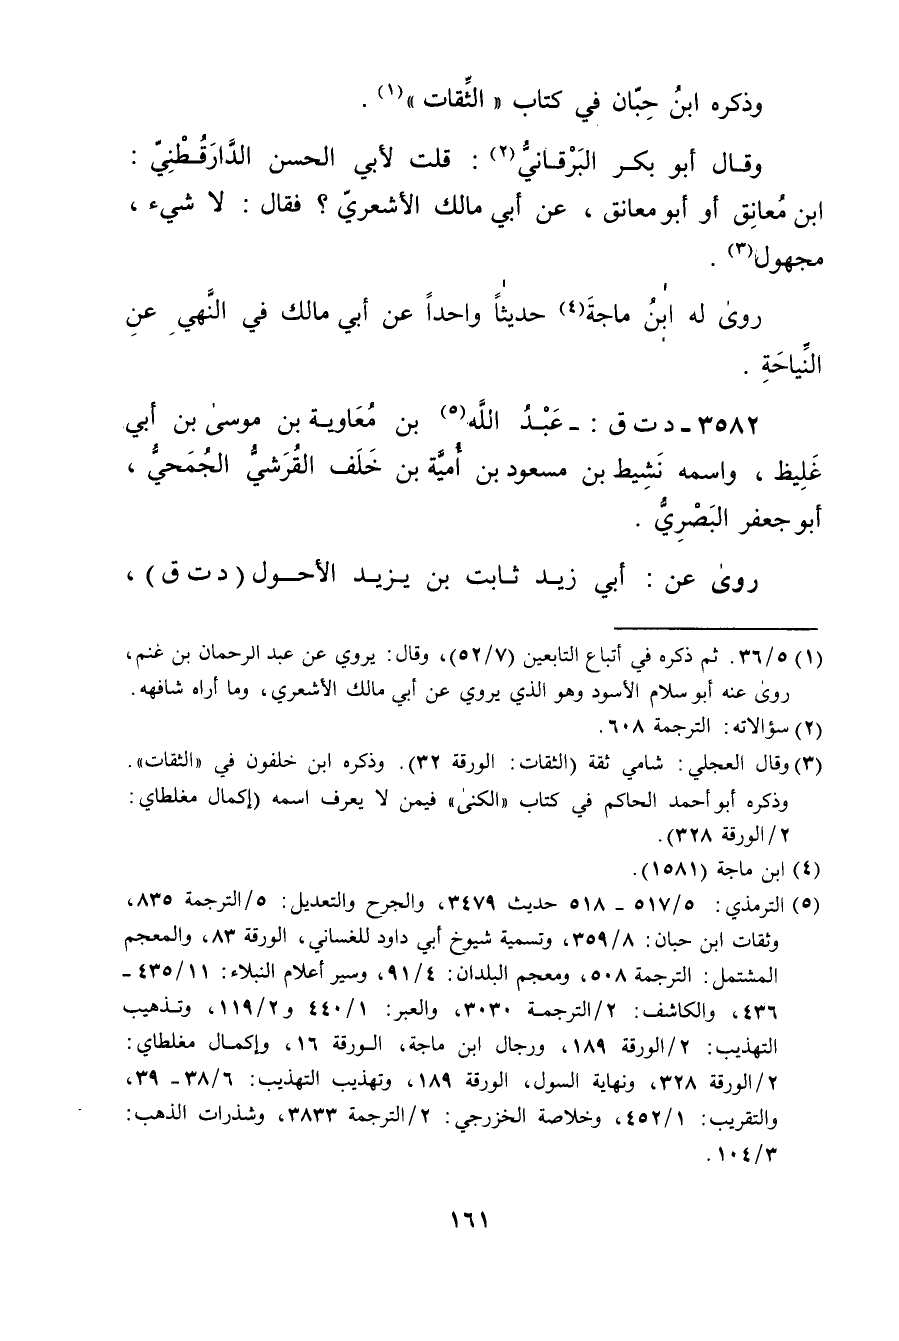 وذكره ابنُ حِبّان في كتاب « الثِّقات »(١) .
وقال أبو بكر البَرْقانيُّ(٢) : قلت لأبي الحسن الدَّارَقُطْنِيّ :
ابن مُعانِق أو أبو معانق ، عن أبي مالك الأشعريّ ؟ فقال : لا شيء ،
مجهول(٣) .
روىٰ له ابنُ ماجةَ(٤) حديثاً واحداً عن أبي مالك في النَّهي عنِ
النِّياحَةِ .
٣٥٨٢ - د ت ق : - عَبْدُ اللَّه(٥) بن مُعَاوية بن موسىٰ بن أبي
غَلِيظ ، واسمه نَشِيط بن مسعود بن أُميَّة بن خَلَف القُرَشيُّ الجُمَحيُّ ،
أبو جعفر البَصْرِيُّ .
روىٰ عن : أبي زيد ثابت بن يزيد الأحول ( د ت ق ) ،
(١) ٣٦/٥. ثم ذكره في أتباع التابعين (٥٢/٧)، وقال: يروي عن عبد الرحمان بن غنم،
روىٰ عنه أبو سلام الأسود وهو الذي يروي عن أبي مالك الأشعري، وما أراه شافهه.
(٢) سؤالاته: الترجمة ٦٠٨.
(٣) وقال العجلي: شامي ثقة (الثقات: الورقة ٣٢). وذكره ابن خلفون في «الثقات».
وذكره أبو أحمد الحاكم في كتاب «الكنىٰ» فيمن لا يعرف اسمه (إكمال مغلطاي:
٢/الورقة ٣٢٨).
(٤) ابن ماجة (١٥٨١).
(٥) الترمذي: ٥١٧/٥ - ٥١٨ حديث ٣٤٧٩، والجرح والتعديل: ٥/الترجمة ٨٣٥،
وثقات ابن حبان: ٣٥٩/٨، وتسمية شيوخ أبي داود للغساني، الورقة ٨٣، والمعجم
المشتمل: الترجمة ٥٠٨، ومعجم البلدان: ٩١/٤، وسير أعلام النبلاء: ٤٣٥/١١ -
٤٣٦، والكاشف: ٢/الترجمة ٣٠٣٠، والعبر: ٤٤٠/١ و١١٩/٢، وتذهيب
التهذيب: ٢/الورقة ١٨٩، ورجال ابن ماجة، الورقة ١٦، وإكمال مغلطاي:
٢/الورقة ٣٢٨، ونهاية السول، الورقة ١٨٩، وتهذيب التهذيب: ٣٨/٦ - ٣٩،
والتقريب: ٤٥٢/١، وخلاصة الخزرجي: ٢/الترجمة ٣٨٣٣، وشذرات الذهب:
١٠٤/٣.
١٦١